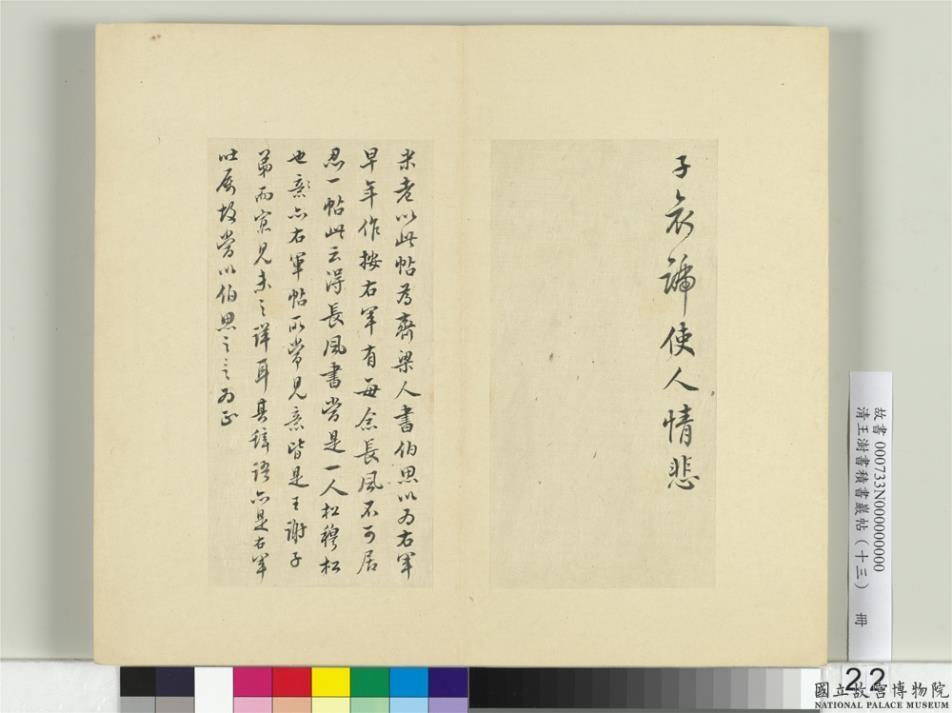 子哀號使人情悲
米老以此帖為齊梁人書伯思以为右軍
早年作按右軍有每念長風不可居
忍一帖此云得長風書當是一人松穆松
也意亦右軍帖所常見意皆是王謝子
弟而寀見未之詳耳其辭語亦是右軍
吐屬故當以伯思之言为正
故書 000733N000000000
清王澍書積書巖帖（十三） 冊
22
國立故宮博物院
NATIONAL PALACE MUSEUM